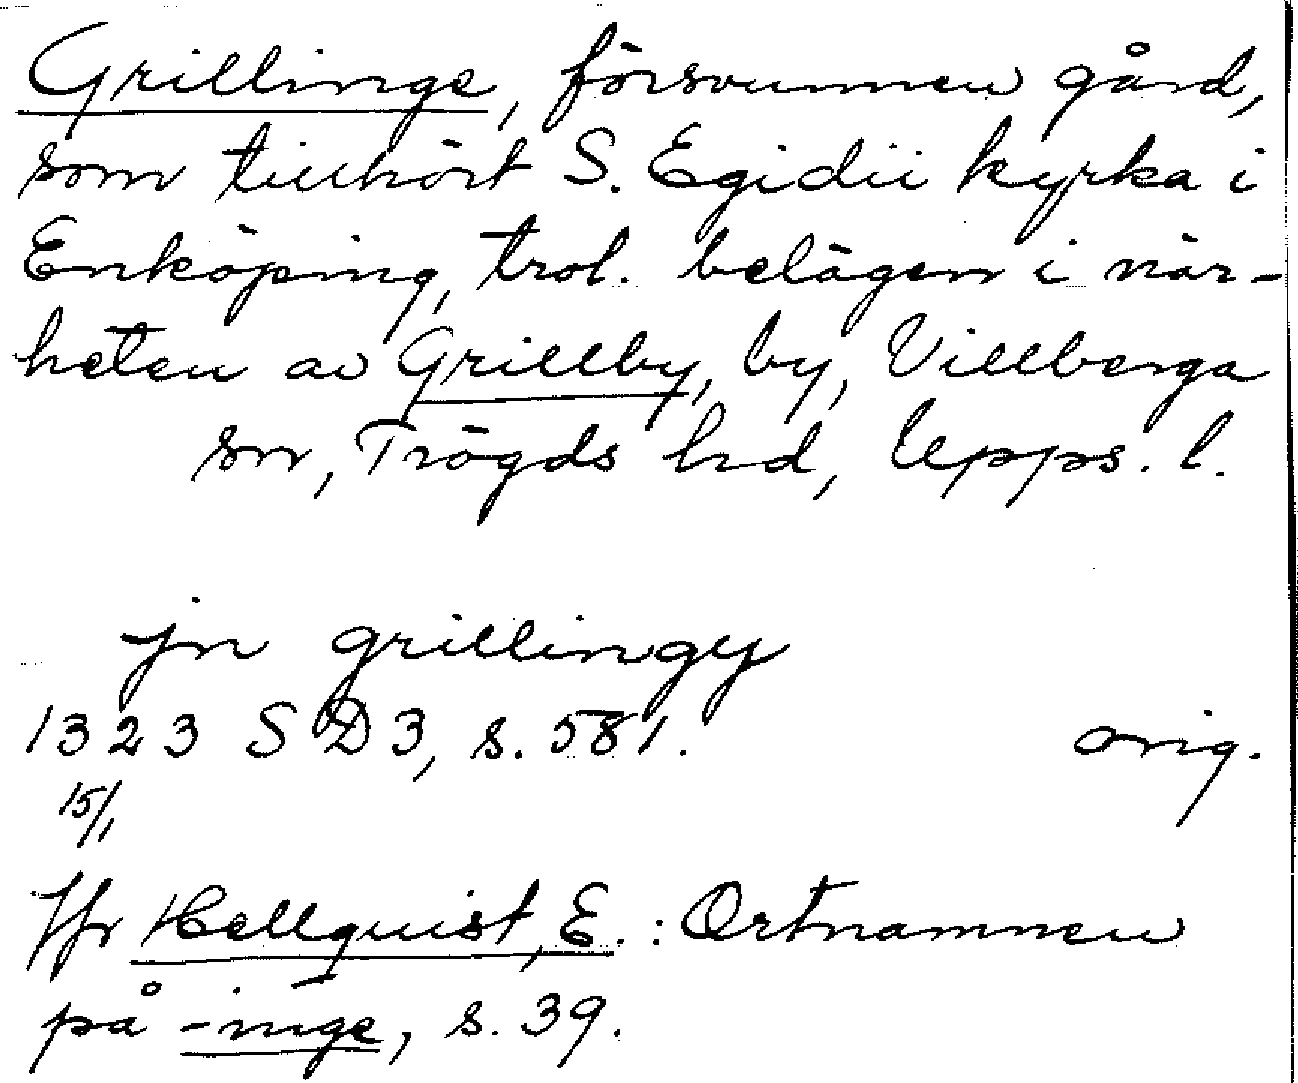 Grillinge, försvunnen gård,
som tillhört S. Egidii kyrka i
Enköping, trol. belägen i när-
heten av Grillby, by, Villberga
sn, Trögds hd, Upps. l.
jn grillingy
1323 SD3, s. 581. orig.
15/1
Jfr Hellquist, E.: Ortnamnen
på -inge, s. 39.